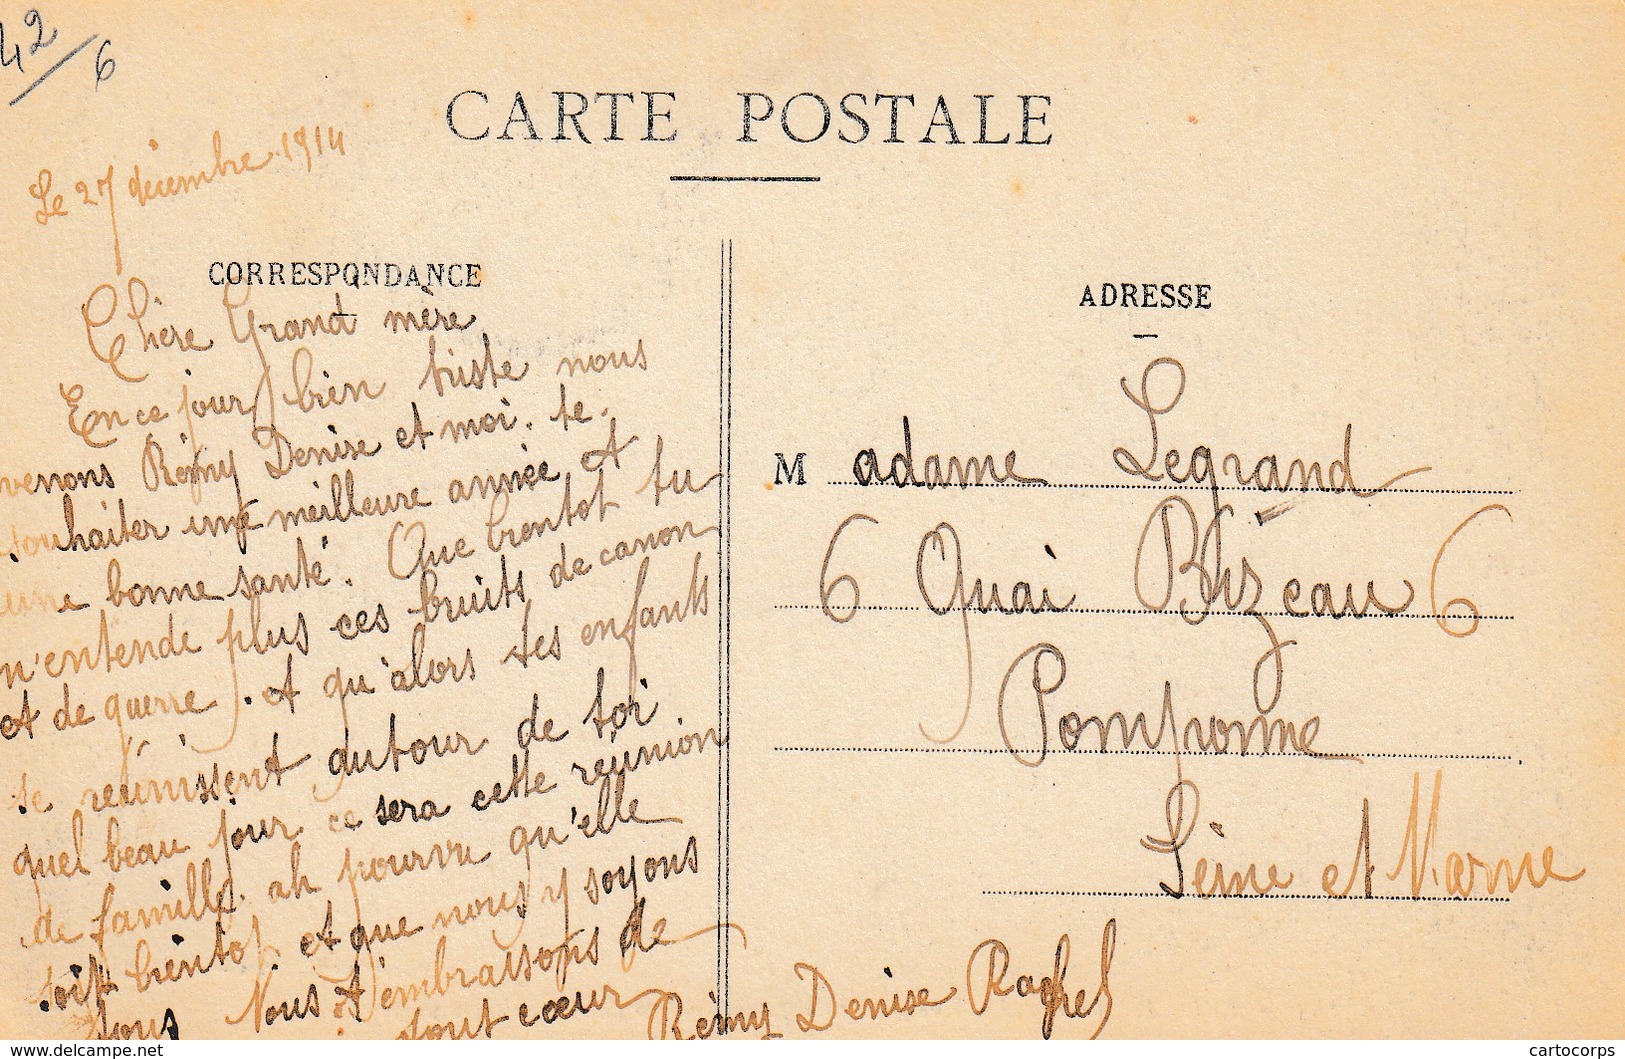 42/6
CARTE POSTALE
Le 27 décembre 1914
CORRESPONDANCE
Chère Grand mère
En ce jour bien triste nous
venons Rémy Denise et moi. te.
souhaiter une meilleure année et
une bonne santé. Que bientot tu
n'entende plus ces bruits de canon
et de guerre. et qu'alors tes enfants
se réunissent autour de toi
quel beau jour ce sera cette réunion
de famille. ah pourvu qu'elle
soit bientot et que nous y soyons
tous Nous t'embrassons de
tout cœur
Rémy Denise Raghel
ADRESSE
M adame Legrand
6 Quai Bizeau 6
Pomponne
Seine et Marne
cartocorps
www.delcampe.net